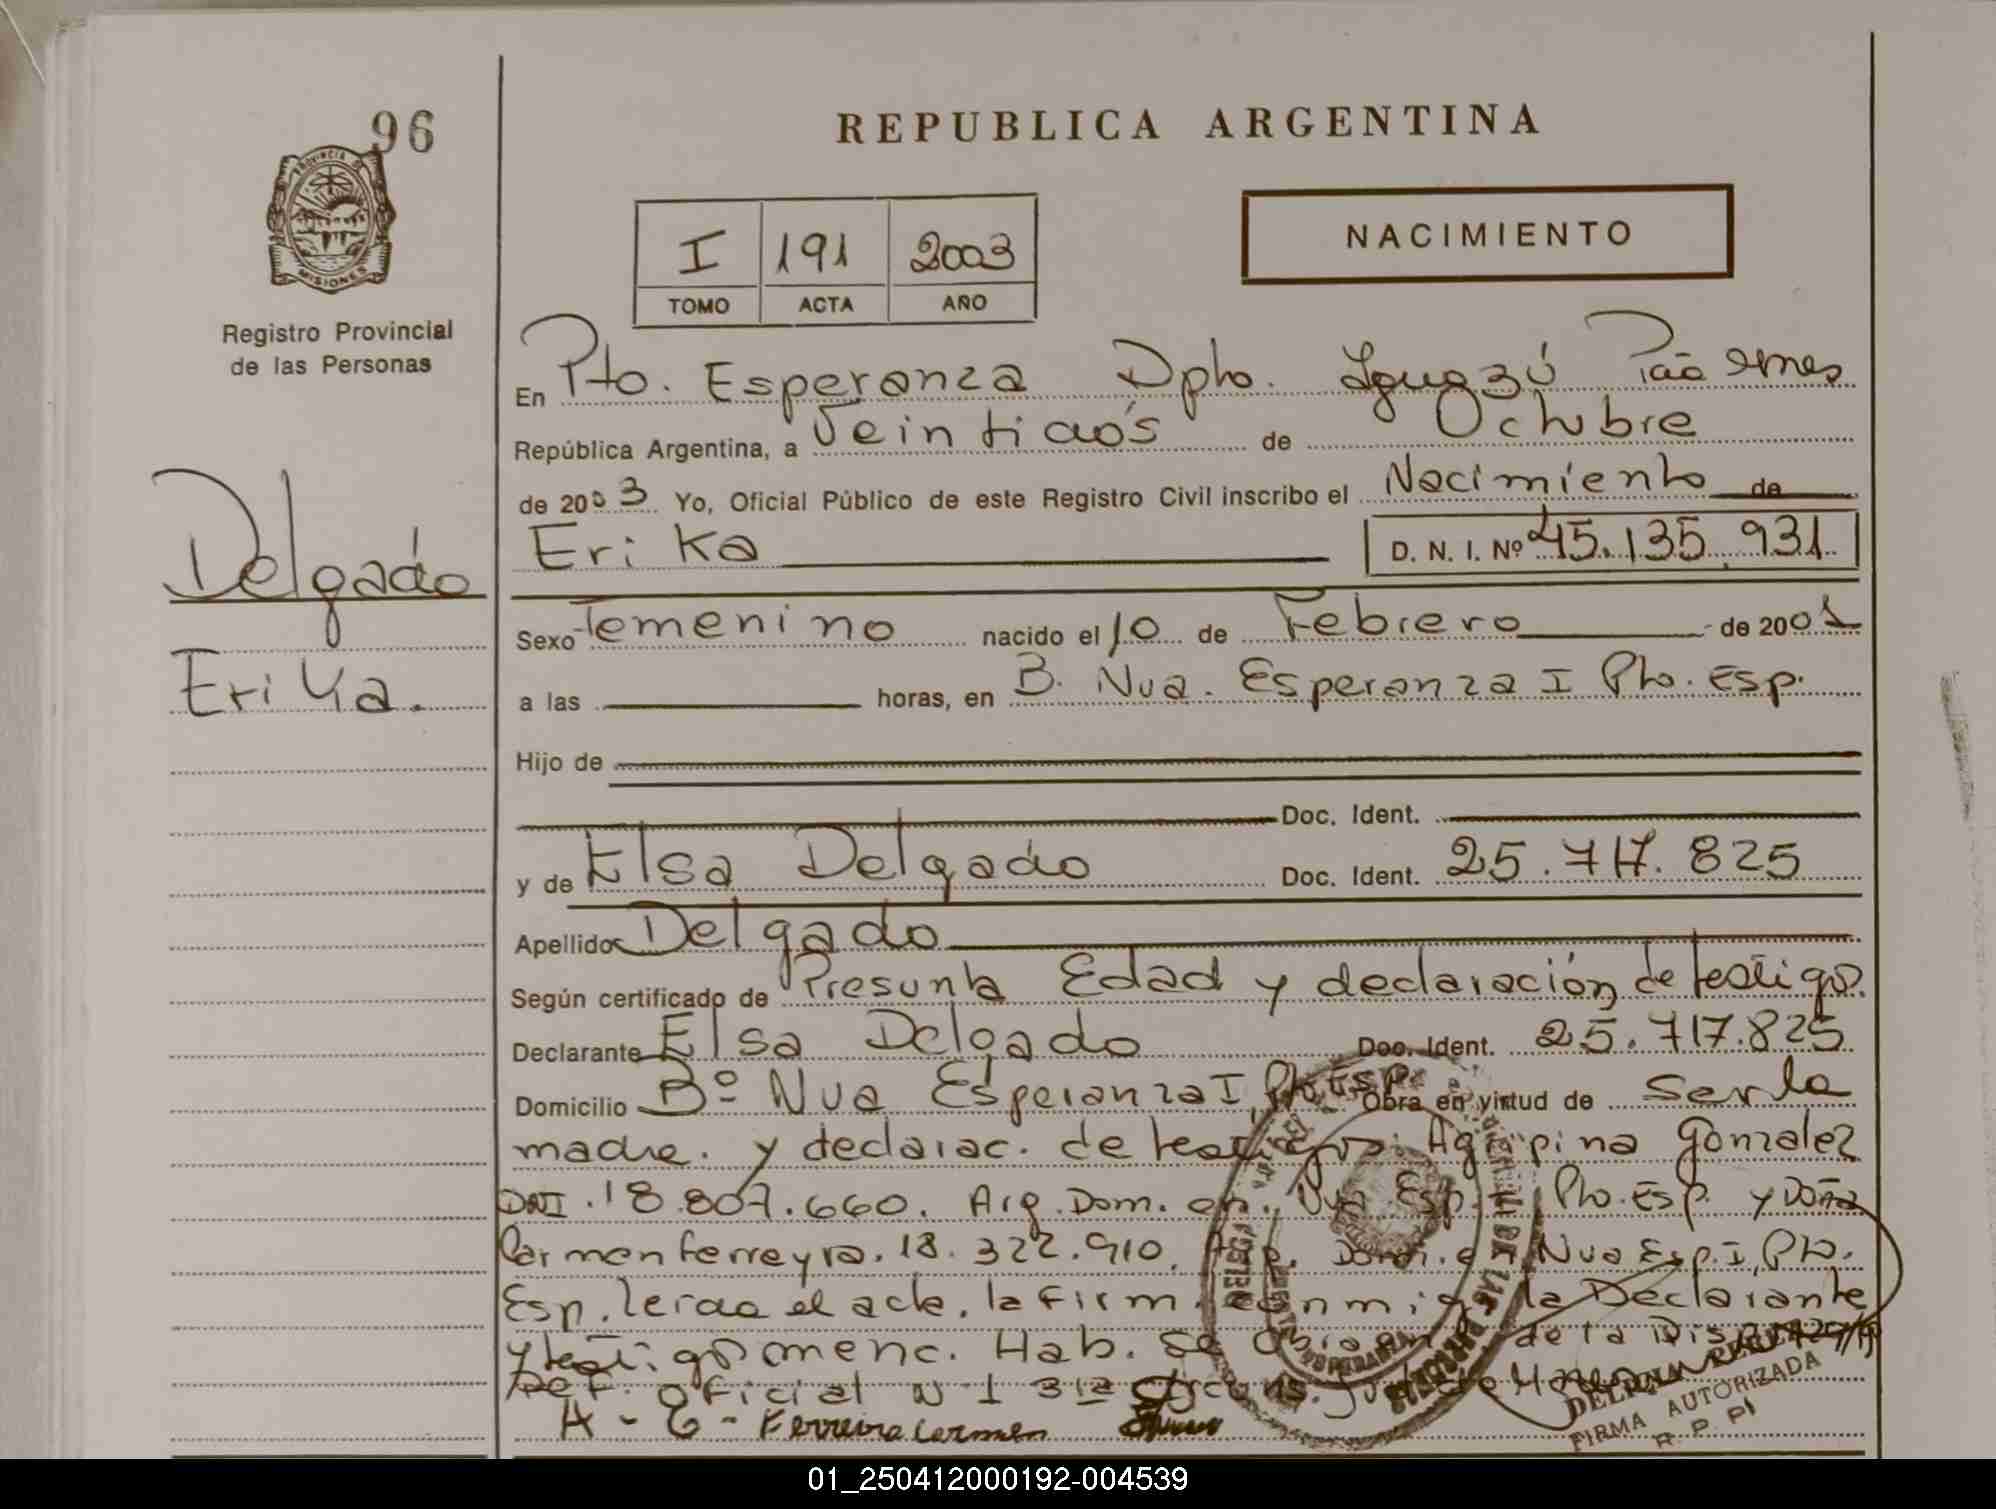 96
REPUBLICA ARGENTINA
PROVINCIA DE
MISIONES
Registro Provincial
de las Personas
I 191 2003
TOMO ACTA AÑO
NACIMIENTO
En Pto. Esperanza Dpto. Iguazú
República Argentina, a Veintidós de Octubre
de 2003 Yo, Oficial Público de este Registro Civil inscribo el Nacimiento de
Erika D. N. I. Nº 45.135.931
Delgado
Erika.
Sexo Femenino nacido el 10 de Febrero de 2001
a las horas, en B. Nva. Esperanza I Pto. Esp.
Hijo de
Doc. Ident.
y de Elsa Delgado Doc. Ident. 25.717.825
Apellido Delgado
Según certificado de Presunta Edad y declaración de testigos.
Declarante Elsa Delgado Doc. Ident. 25.717.825
Domicilio Bº Nva Esperanza I, Pto. Esp. Obra en virtud de ser la
madre. y declarac. de testigos: Agripina Gonzalez
DNI. 18.807.660. Arg. Dom. en. Nva Esp. I Pto. Esp. y Doña
Carmen Ferreyra. 18.322.910. Arg. Dom. en Nva Esp. I, Pto.
Esp. leida el acta, la firm. conmigo la Declarante
y testigos menc. Hab. de la
Def. Oficial N 1 3ra
Ferreira carmen
FIRMA AUTORIZADA
R. P. P.
01_250412000192-004539